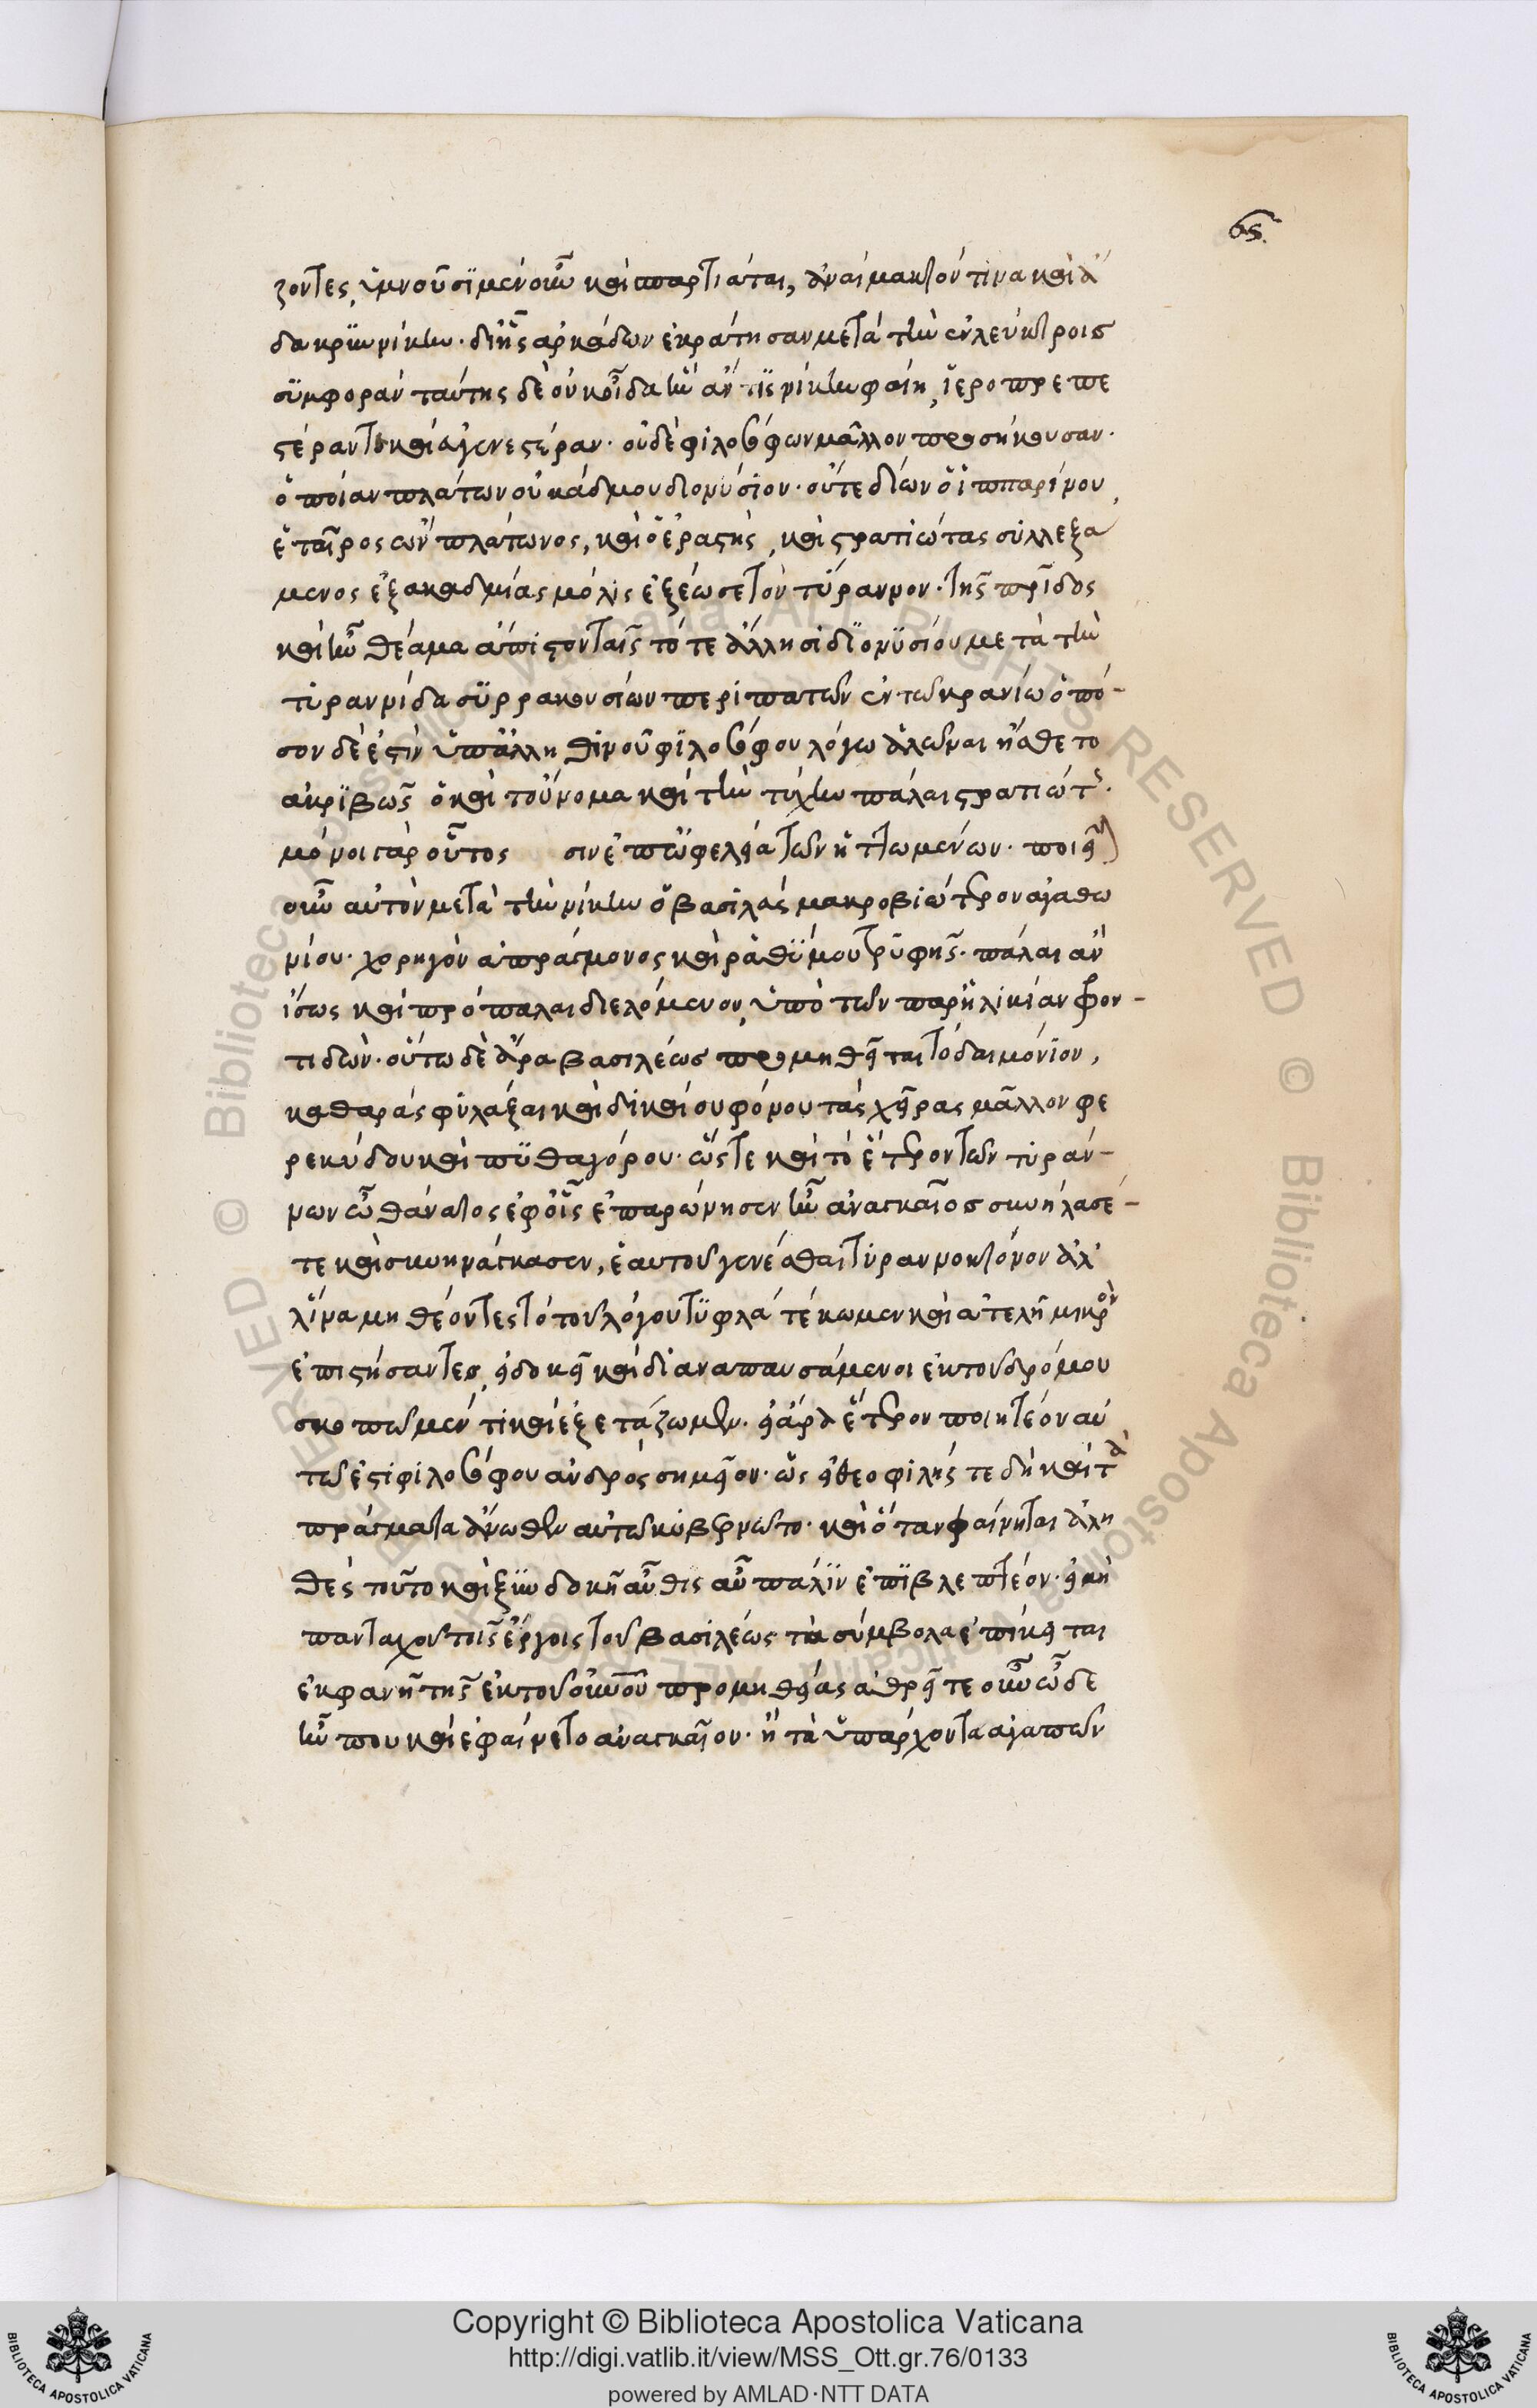 65.
ζοντες, ὑμνοῦσι μὲν οὖν καὶ σπαρτιάται, ἀναίμακτόν τινα καὶ ἄ
δακρυν νίκην· δι' ἧς ἀρκάδων ἐκράτησαν μετὰ τὴν ἐν λεύκτροις
συμφοράν ταύτης δὲ οὐκ οἶδα ἣν ἄν τις νίκην φαίη, ἱεροπρεπε
στέραν τε καὶ εὐαγεστέραν· οὐδὲ φιλοσόφων μᾶλλον προσήκουσαν·
ὁποίαν πλάτων οὐκ ἀδμου διονύσιον· οὔτε δίων ὁ ἱππαρίνου
ἑταῖρος ὢν πλάτωνος, καὶ ὁ ἐραστὴς, καὶ στρατιώτας συλλεξά
μενος ἐξ ἀκαδημίας μόλις ἐξέωσε τὸν τύραννον· τῆς πατρίδος
καὶ ἦν θέαμα ἄπιστον τοῖς τότε ἕλλησι διονυσίου μετὰ τὴν
τυραννίδα συρρακουσίων περιπατῶν ἐν τῷ κρανίῳ ὁπό-
σον δέ ἐστιν ὑπ' ἀληθινοῦ φιλοσόφου λόγῳ ἁλῶναι ᾔσθετο
ἀκριβῶς ὁ καὶ τοὔνομα καὶ τὴν τύχην πάλαι στρατιώτης·
μόνοι γὰρ οὗτος σιν ἐπ' ὠφελείᾳ τῶν ἡττωμένων· ποιεῖ
οὖν αὐτὸν μετὰ τὴν νίκην ὁ βασιλεὺς μακροβιώτερον ἀγαθω
νίου· χορηγὸν ἀπράγμονος καὶ ῥαθύμου τρυφῆς· πάλαι ἂν
ἴσως καὶ πρόπαλαι διελόμενον, ὑπὸ τῶν παρ' ἡλικίαν φρον-
τίδων· οὕτω δὲ ἄρα βασιλέως προμηθεῖται τὸ δαιμόνιον,
καθαρὰς φυλάξαι καὶ δικαίου φόνου τὰς χεῖρας μᾶλλον φε
ρεκύδου καὶ πυθαγόρου· ὥστε καὶ τὸ ἕτερον τῶν τυράν-
νων ὧ θάνατος ἐφ' οἷς ἐπαρῴνησεν ἦν ἀναγκαῖος συνήλασέ-
τε καὶ συνηνάγκασεν, ἑαυτοῦ γενέσθαι τυραννοκτόνον ἀλ
λ' ἵνα μὴ θέοντες τὸ τοῦ λόγου τυφλά τέκωμεν καὶ ἀτελῆ μικρὸν
ἐπιστήσαντες, εἰ δοκεῖ καὶ διαναπαυσάμενοι ἐκ τοῦ δρόμου
σκοπῶμέν τι καὶ ἐξετάζωμεν· εἰ ἄρα ἕτερον ποιητέον αὐ
τῷ ἐστι φιλοσόφου ἀνδρὸς σημεῖον· ὡς εἰ θεοφιλής τε δὴ καὶ τὰ
πράγματα ἄνωθεν αὐτῷ κυβερνῷτο· καὶ ὅταν φαίνηται ἀλη
θὲς τοῦτο καὶ ξυνδοκῇ αὖθις αὖ πάλιν ἐπιβλεπτέον· εἰ μὴ
πανταχοῦ τοῖς ἔργοις τοῦ βασιλέως τὰ σύμβολα ἐπίκειται
ἐκφανῆ τῆς ἐκ τοῦ οὐρανοῦ προμηθείας ἀθρεῖτε οὖν ὧδε
ἦν που καὶ ἐφαίνετο ἀναγκαῖον· ἢ τὰ ὑπάρχοντα ἀγαπῶν
Copyright © Biblioteca Apostolica Vaticana
http://digi.vatlib.it/view/MSS_Ott.gr.76/0133
powered by AMLAD·NTT DATA